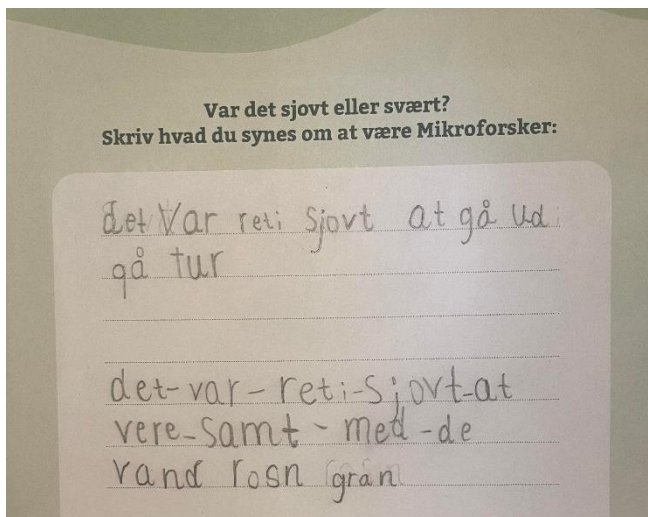 Var det sjovt eller svært?
Skriv hvad du synes om at være Mikroforsker:
det Var reti sjovt at gå ud
gå tur
det-var-reti-sjovt-at
vere-samt-med-de
vand rosn gran